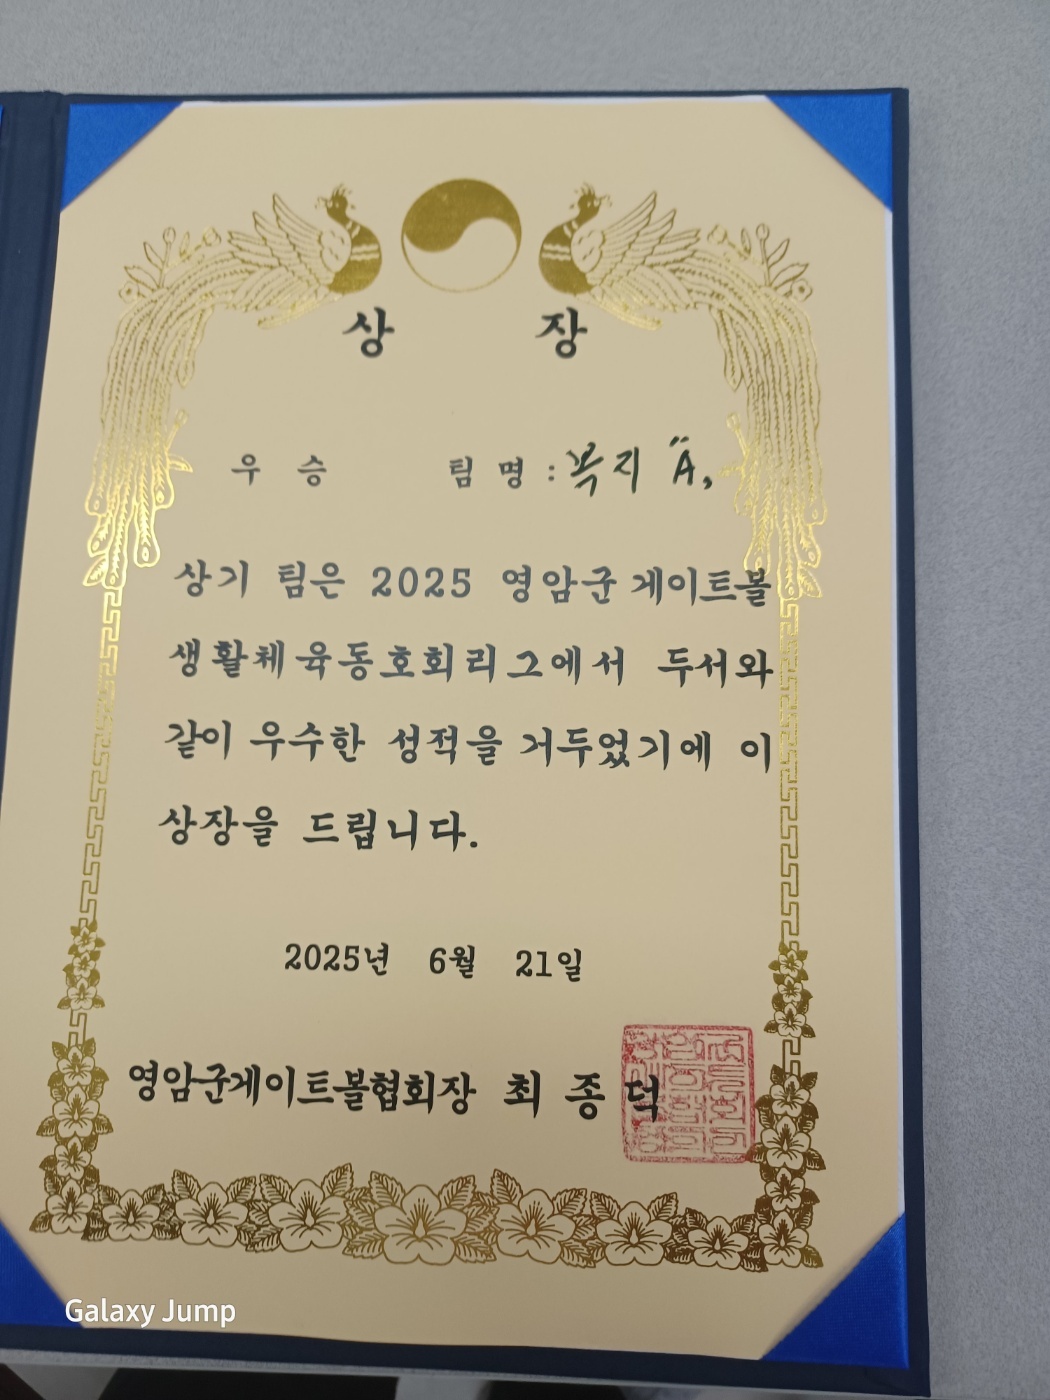 상 장
우 승 팀 명 : 복지 "A,
상기 팀은 2025 영암군 게이트볼
생활체육동호회리그에서 두서와
같이 우수한 성적을 거두었기에 이
상장을 드립니다.
2025년 6월 21일
영암군게이트볼협회장 최 종 덕
Galaxy Jump